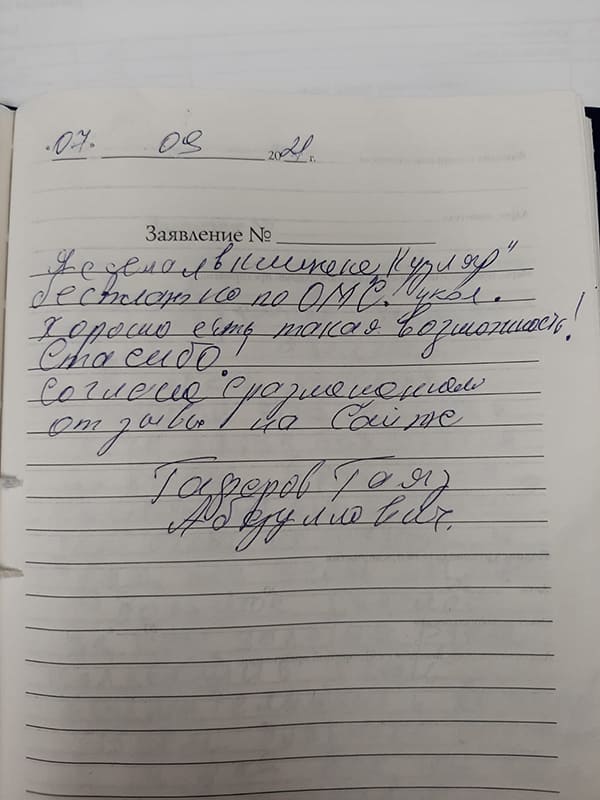 "07" 09 2021 г.
Заявление №
Я сделал в клинике „Кузляр"
бесплатно по ОМС укол.
Хорошо есть такая возможность!
Спасибо!
Согласно с размещением
отзыва на сайте
Гаяз
Абдуллович.